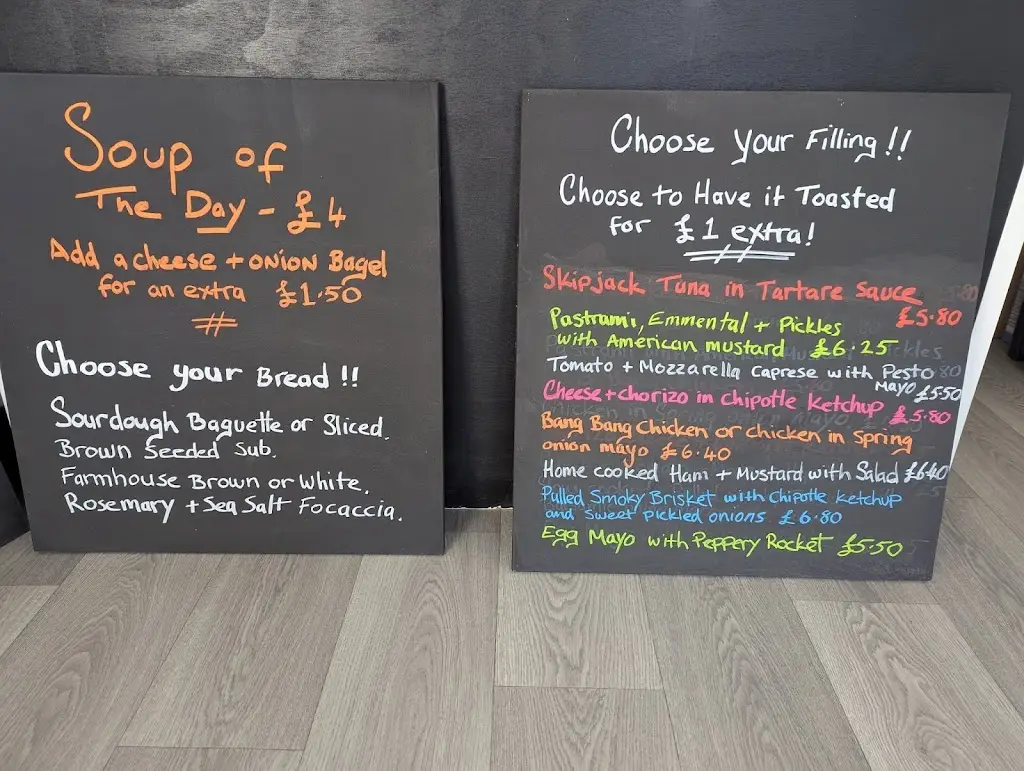 Soup of
The Day - £4
Add a cheese + onion Bagel
for an extra £1.50
#
Choose your Bread !!
Sourdough Baguette or Sliced.
Brown Seeded Sub.
Farmhouse Brown or White.
Rosemary + Sea Salt Focaccia.
Choose your Filling !!
Choose to Have it Toasted
for £1 extra!
Skipjack Tuna in Tartare Sauce
£5.80
Pastrami, Emmental + Pickles
with American mustard £6.25
Tomato + Mozzarella Caprese with Pesto
Mayo £5.50
Cheese + chorizo in chipotle ketchup £5.80
Bang Bang Chicken or chicken in Spring
onion mayo £6.40
Home cooked Ham + Mustard with Salad £6.40
Pulled Smoky Brisket with chipotle ketchup
and sweet pickled onions £6.80
Egg Mayo with Peppery Rocket £5.50